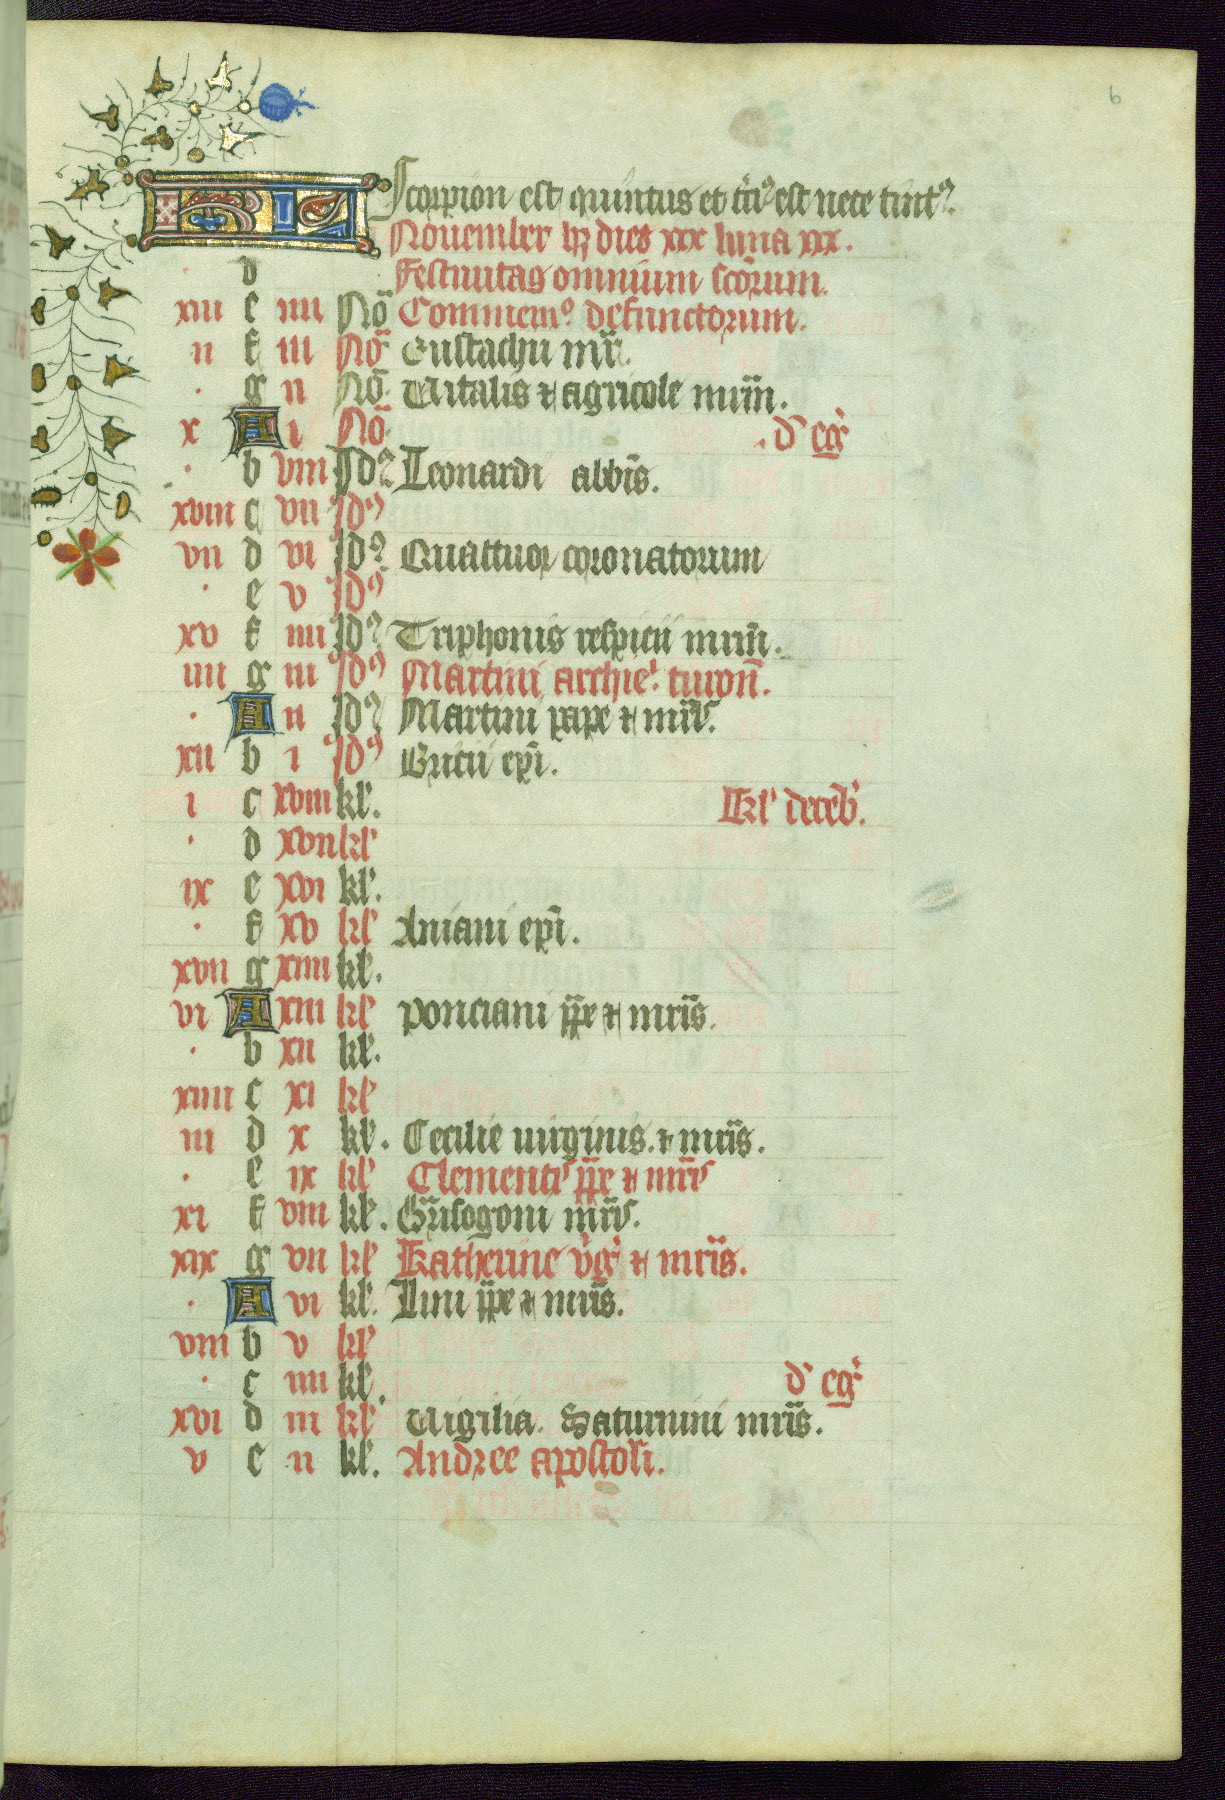 6
KL Scorpion est quintus et t̄cī9 est nece tinct9.
Nouember hȝ dies xxx luna xxx.
d Festiuitas omnium sc̄orum.
xiii e iiii No Commemo. defunctorum.
ii f iii No Eustachii mr̄.
. g ii No Uitalis ⁊ agricole mr̄m.
x A i No . d' eg'
. b viii Id9 Leonardi abb̄is.
xviii c vii Id9
vii d vi Id9 Quattuor coronatorum
. e v Id9
xv f iiii Id9 Triphonis respicii mr̄m.
iiii g iii Id9 Martini archie'. turon̄.
. A ii Id9 Martini pape ⁊ mr̄is.
xii b i Id9 Bricii ep̄i.
i c xviii kl'. kl' decēb'.
. d xvii kl'
ix e xvi kl'.
. f xv kl' Aniani ep̄i.
xvii g xiiii kl'.
vi A xiii kl' ponciani p̄pe ⁊ mr̄is.
. b xii kl'.
xiiii c xi kl'
iii d x kl'. Cecilie uirginis. ⁊ mr̄is.
. e ix kl' Clementis p̄pe ⁊ mr̄is
xi f viii kl'. Grisogoni mr̄is.
xix g vii kl' Katherine v'g' ⁊ mr̄is.
. A vi kl'. Lini p̄pe ⁊ mr̄is.
viii b v kl'
. c iiii kl'. d' eg'
xvi d iii kl' Uigilia. Saturnini mr̄is.
v e ii kl'. Andree apostoli.